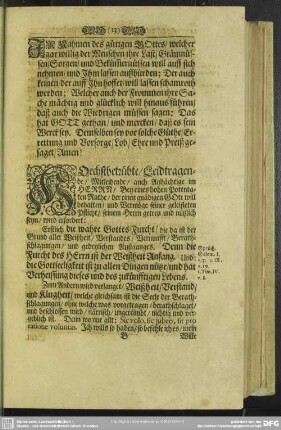 (13)
IM Nahmen des gütigen GOttes/ welcher
gar willig der Menschen ihre Last, Grämnüs-
sen Sorgen/ und Bekümmernüssen will auff sich
nehmen/ und Ihm lassen auffbürden; Der auch
keinen der auff Ihn hoffet/ will lassen schamroth
werden; Welcher auch der Frommen ihre Sa-
che mächtig und glücklich will hinaus führen/
daß auch die Wiedrigen müssen sagen; Das
hat GOTT gethan/ und mercken/ daß es sein
Werck sey. Demselben sey vor solche Güthe/ Er-
rettung und Vorsorge/ Lob/ Ehr und Preiß ge-
saget/ Amen!
HOechstbetrübte/ Leidtragen-
de/ Mitleydende/ auch Andächtige im
HERRN/ Bey eines hohen Potenta-
ten Rathe/ der einen gnädigen GOtt will
behalten/ und Vermöge seiner geleisteten
Pflicht/ seinem Herrn getreu und nützlich
seyn/ wird erfordert:
Erstlich die wahre Gottes-Furcht/ die da ist der
Grund aller Weißheit/ Verstandes/ Vernunfft/ Berath-
schlagungen/ und gedeylichen Anfanges. Denn die
Furcht des HErrn ist der Weisheit Anfang. Und
die Gottseeligkeit ist zu allen Dingen nütze/ und hat
Verheissung dieses und des zukünfftigen Lebens.
Sprüch.
Salom. I.
v. 7.
1. Tim. IV.
v. 8.
Zum Andern wird verlanget/ Weißheit/ Verstand/
und Klugheit/ welche gleichsam ist die Seele der Berath-
schlagungen/ ohne welche was vorgetragen/ berathschlaget/
und beschlossen wird/ närrisch/ ungereimbt/ nichtig und ver-
geblich ist. Denn wo nur allt: Sic volo, sic jubeo, sit pro
ratione voluntas. Ich wills so haben/ so befehle ich es/ mein
B
Wille